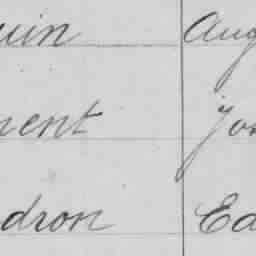 uin Aug
nent Jos
dron Ed